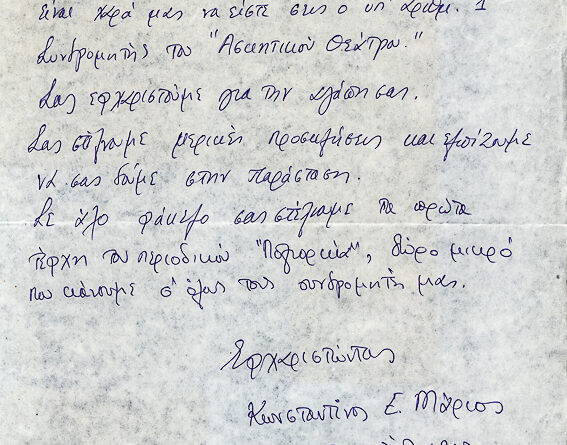 είναι χαρά μας να είστε σεις ο υπ' αριθμ. 1
Συνδρομητής του "Ασκητικού Θεάτρου."
Σας ευχαριστούμε για την αγάπη σας.
Σας στέλνουμε μερικές προσκλήσεις και ελπίζουμε
να σας δούμε στην παράσταση.
Σε άλλο φάκελο σας στέλνουμε τα πρώτα
τεύχη του περιοδικού "Πολιορκία", δώρο μικρό
που κάνουμε σ' όλους τους συνδρομητές μας.
Ευχαριστώντας
Κωνσταντίνος Ε. Μάριος